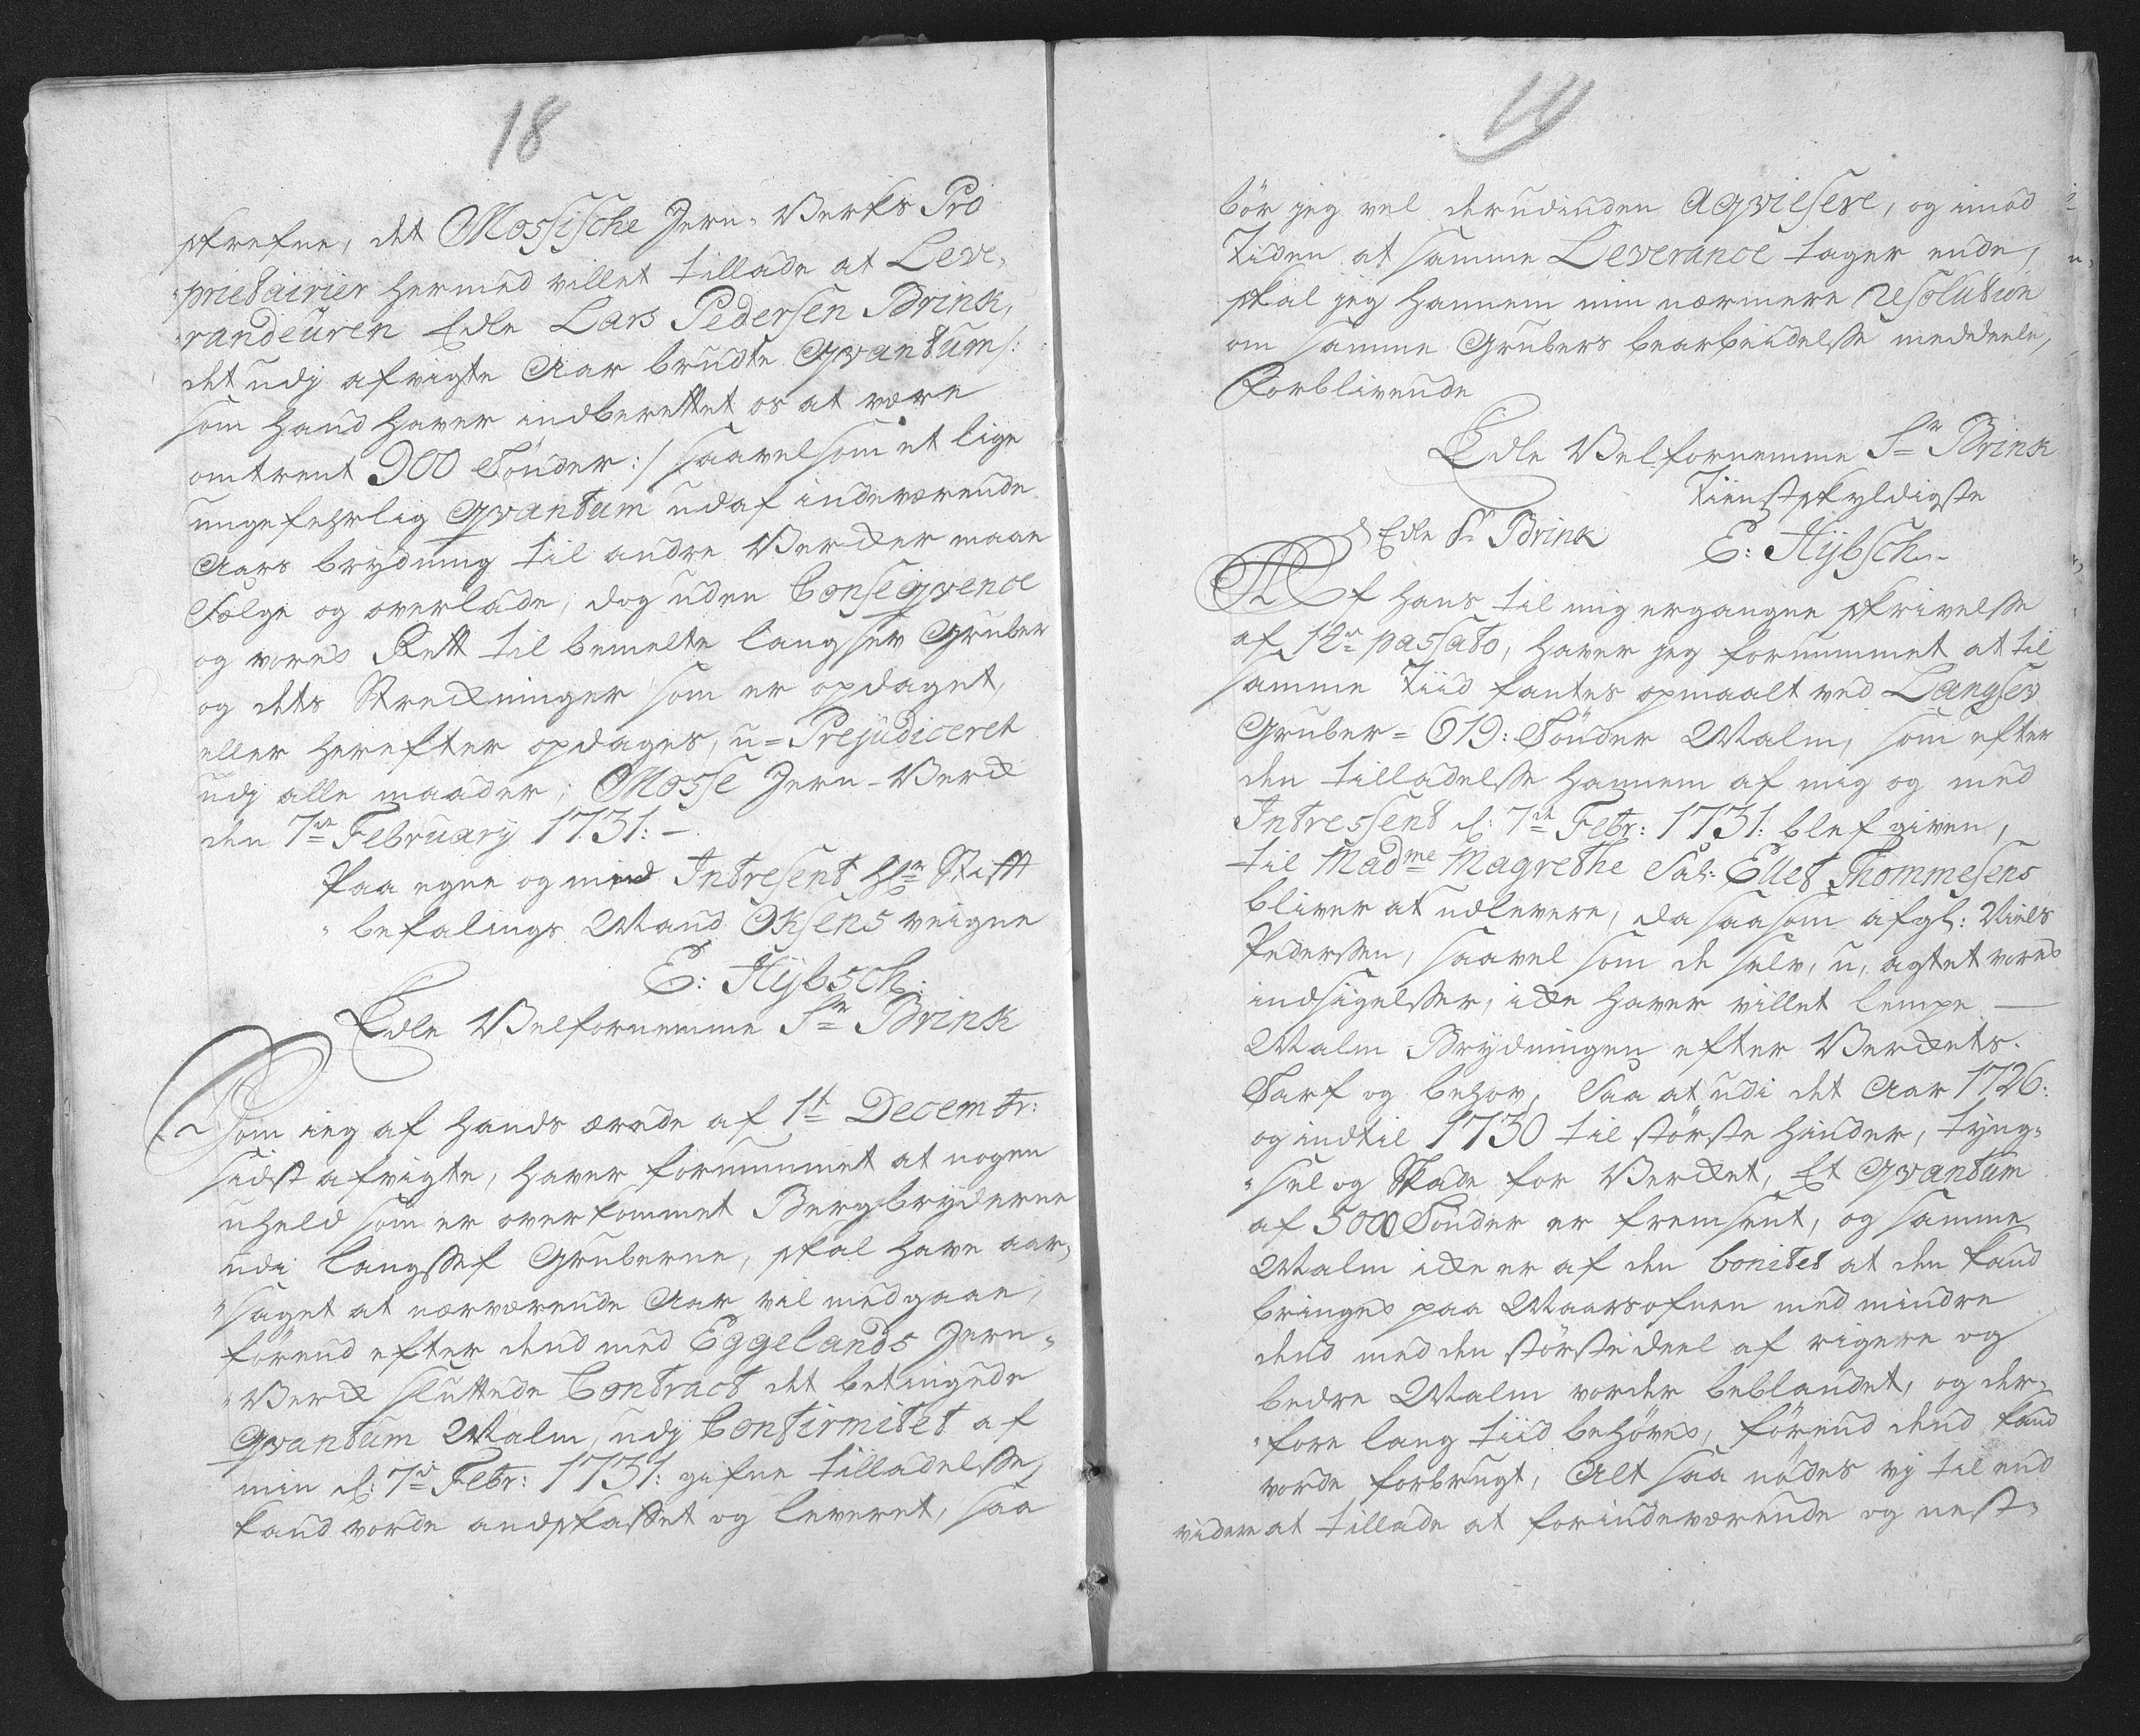 18
skrefne, det Mossische Jern-Verks Pro
"prietairier hermed villet tillade at Leve,
"randeüren Edle Lars Pedersen Brink,
det udj afvigte Aar brudte Qvantum /:
som hand haver indberettet os at være
omtrent 900 Tönder :/ saavelsom et lige
ungefehrlig Qvantum udaf indeværende
Aars brydning til andre Verker maae
Sælge og overlade, dog uden Conseqvence
og vores Rett til bemelte langsev Gruber
og dets Strekninger som er opdaget,
eller herefter opdages, u=Prejudiceret
udj alle maader; Mosse Jern-Verk
den 7de February 1731: -
Paa egne og med Intresent Hr: Stift
"befalings Mand Oksens veigne
E: Hÿbsch:
Edle Velfornemme Sr Brink
Som ieg af hands ærede af 1t Decembr:
sidst afvigte, haver fornummet at nogen
uheld som er overkommet Bergbryderne
udi langssef Gruberne, skal have aar,
"saget at nærværende Aar vil medgaae,
förend efter dend med Eggelands Jern-
"Verk sluttede Contract det betingede
Qvantum Malm, udj Confirmitet af
min d: 7de Febr: 1731: gifne tilladelsse,
kand vorde andskaffet og leveret, saa
19
bör jeg vel derudinden Aqviesere, og imod
Tiden at samme Leverance tager ende,
skal jeg hannem min nærmere resolution
om samme Grubers bearbeidelsse meddeele,
Forblivende
Edle Velfornemme Sr Brink
Tienstskyldigste
Edle Sr Brink E: Hÿbsch
Af hans til mig ergangne skrivelsse
af 12te passato, haver jeg fornummet at til
samme Tiid fantes opmaalt ved Langsev
Gruber = 619: Tönder Malm, som efter
den tilladelsse hannem af mig og med
Intressent d: 7de Febr: 1731: blef given,
til Madme Magrethe Sal: Ellef Thommesens
bliver at udlevere, da saasom afgl: Niels
Pedersen, saavel som de selv, u, agtet vores
indsigelsser, ikke haver villet lempe —
Malm Brydningen efter Verkets.
Tarf og behov, Saa at udi det Aar 1726:
og indtil 1730 til störste hinder, tyng-
"sel og Skade for Verket, Et Qvantum
af 5000 Tönder er fremsent, og samme
Malm ikke er af den bonitet at den kand
bringes paa Maarsofnen med mindre
dend med den störste deel af rigere og
bedre Malm vorder beblandet, og der,
"fore lang tiid behöves, förend dend kand
vorde forbrugt, Alt saa nödes vj til end
videre at tillade at for indeværende og nest-